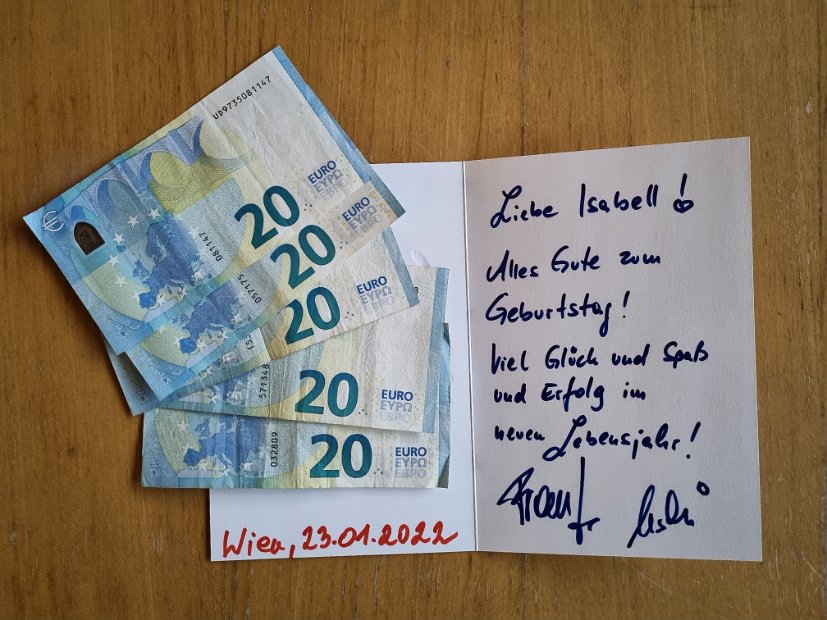 UD9735081147
20
EURO
ΕΥΡΩ
ЕВРО
081147
20
EURO
ΕΥΡΩ
057175
20
EURO
ΕΥΡΩ
ЕВРО
20
EURO
ΕΥΡΩ
ЕВРО
571348
20
EURO
ΕΥΡΩ
ЕВРО
032809
Wien, 23.01.2022
Liebe Isabell!
Alles Gute zum
Geburtstag!
Viel Glück und Spaß
und Erfolg im
neuen Lebensjahr!